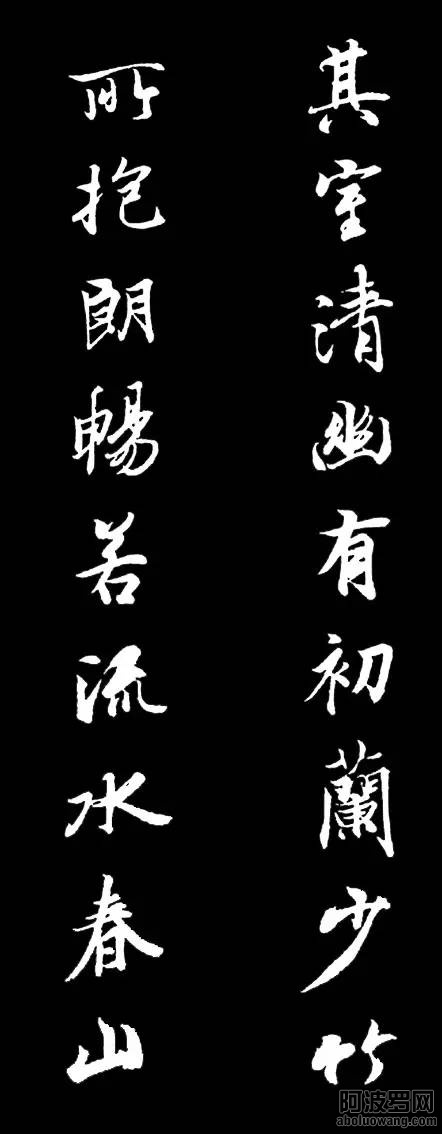 其室清幽有初蘭少竹
所抱朗暢若流水春山
阿波罗网
aboluowang.com